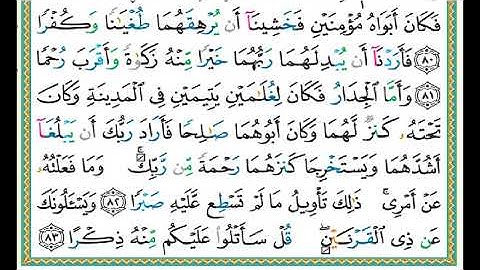 فَكَانَ أَبَوَاهُ مُؤْمِنَيْنِ فَخَشِينَآ أَن يُرْهِقَهُمَا طُغْيَٰنًا وَكُفْرًا
﴿٨٠﴾ فَأَرَدْنَآ أَن يُبْدِلَهُمَا رَبُّهُمَا خَيْرًا مِّنْهُ زَكَوٰةً وَأَقْرَبَ رُحْمًا
﴿٨١﴾ وَأَمَّا ٱلْجِدَارُ فَكَانَ لِغُلَٰمَيْنِ يَتِيمَيْنِ فِى ٱلْمَدِينَةِ وَكَانَ
تَحْتَهُۥ كَنزٌ لَّهُمَا وَكَانَ أَبُوهُمَا صَٰلِحًا فَأَرَادَ رَبُّكَ أَن يَبْلُغَآ
أَشُدَّهُمَا وَيَسْتَخْرِجَا كَنزَهُمَا رَحْمَةً مِّن رَّبِّكَ ۚ وَمَا فَعَلْتُهُۥ
عَنْ أَمْرِى ۚ ذَٰلِكَ تَأْوِيلُ مَا لَمْ تَسْطِع عَّلَيْهِ صَبْرًا ﴿٨٢﴾ وَيَسْـَٔلُونَكَ
عَن ذِى ٱلْقَرْنَيْنِ ۖ قُلْ سَأَتْلُوا۟ عَلَيْكُم مِّنْهُ ذِكْرًا ﴿٨٣﴾